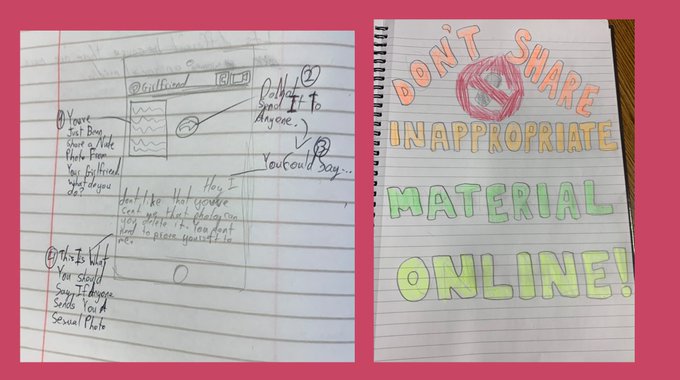 ① You've
Just Been
Share a Nude
Photo From
Your Girlfriend
What do you
do?
Girlfriend
②
Do Not
Send It To
Anyone.
③
You Could Say...
Hey, I
don't like that you've
sent me that photo can
you delete it. You dont
need to prove yourself to
me.
④ This Is What
You should
Say If Anyone
Sends You A
Sexual Photo
DON'T SHARE
INAPPROPRIATE
MATERIAL
ONLINE!